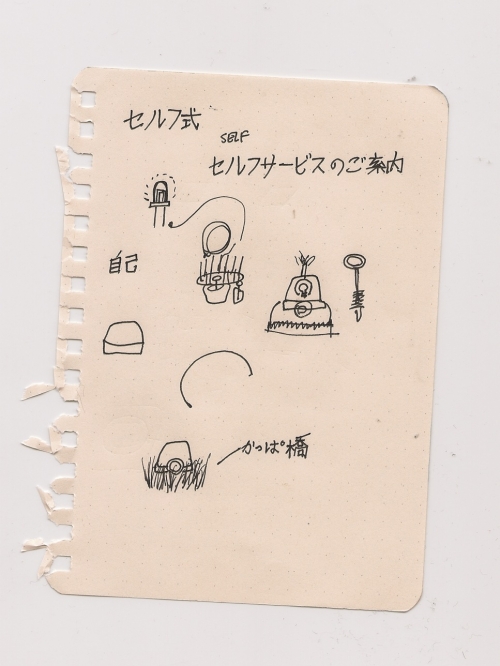 セルフ式
SELF
セルフサービスのご案内
自己
かっぱ橋